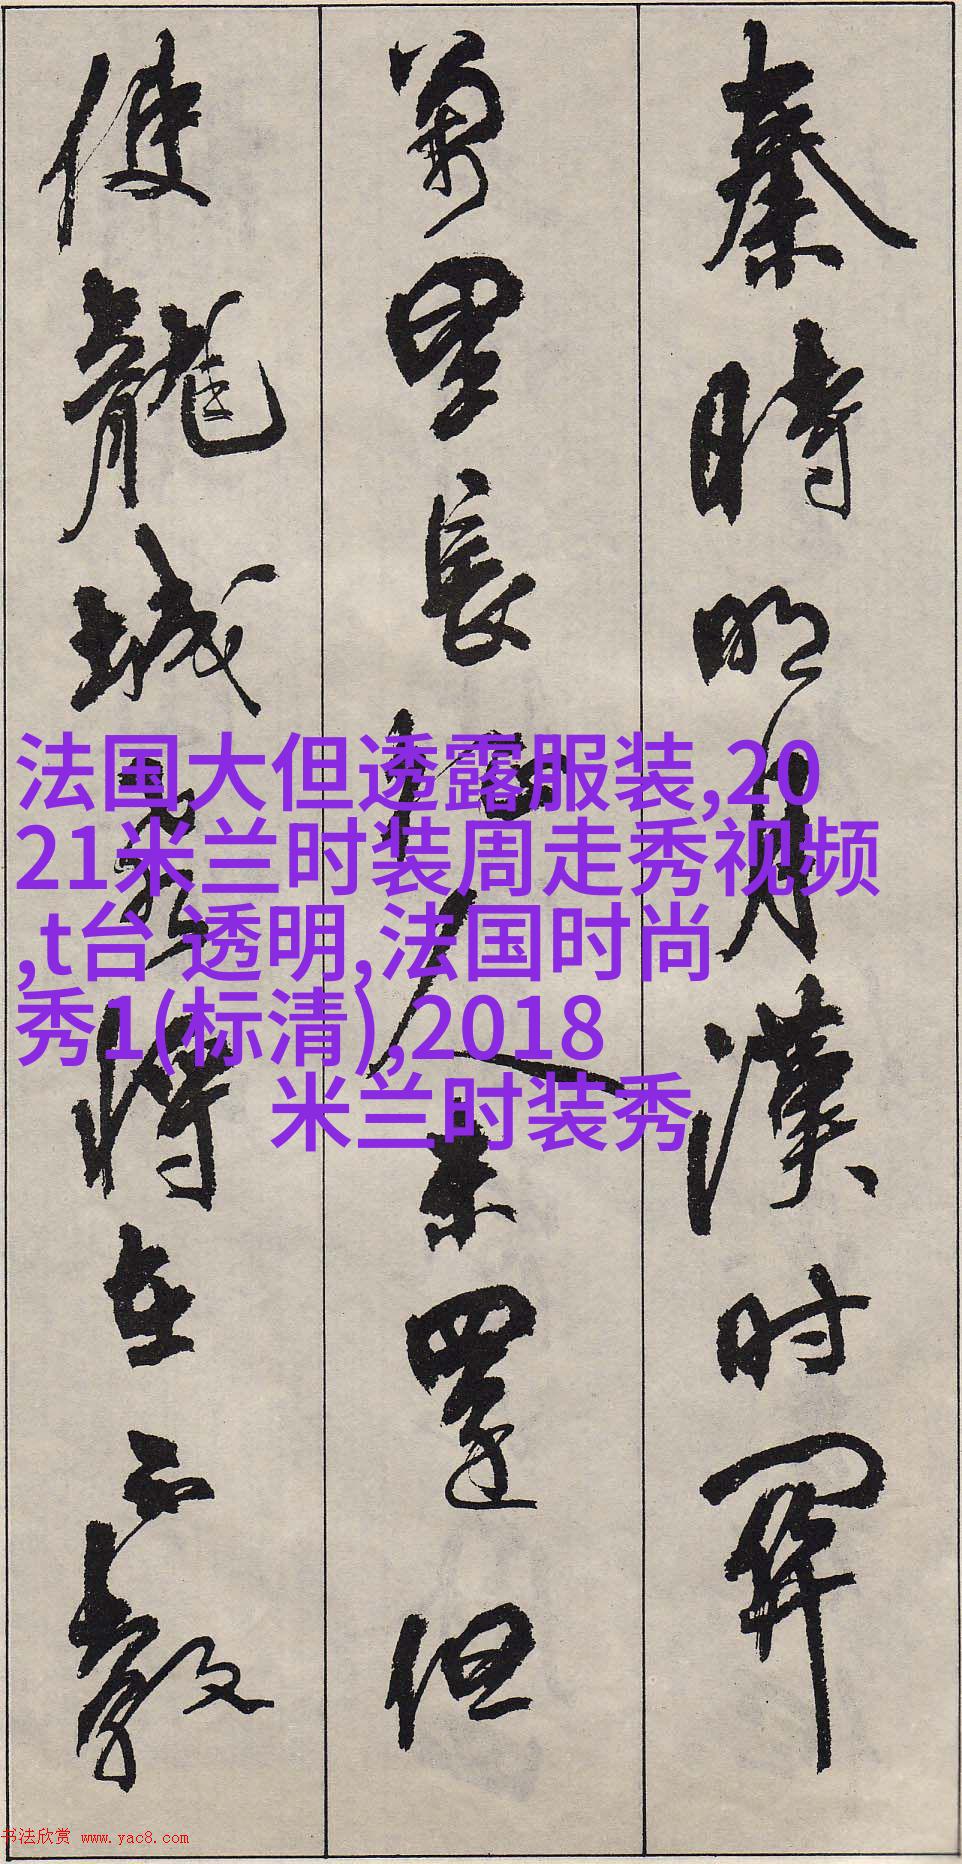 秦時明月漢时關
萬里長征人未還但
使龍城飛將在不教
法国大但透露服装,20
21米兰时装周走秀视频
,t台 透明,法国时尚
秀1(标清),2018
米兰时装秀
书法欣赏 www.yac8.com